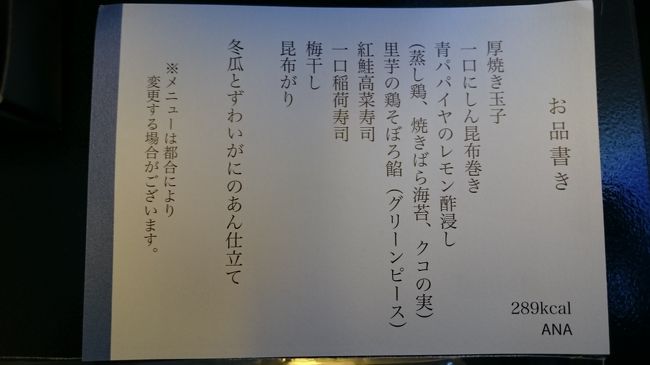 お品書き
厚焼き玉子
一口にしん昆布巻き
青パパイヤのレモン酢浸し
(蒸し鶏、焼きばら海苔、クコの実)
里芋の鶏そぼろ餡(グリーンピース)
紅鮭高菜寿司
一口稲荷寿司
梅干し
昆布がり
冬瓜とずわいがにのあん仕立て
※メニューは都合により
変更する場合がございます。
289kcal
ANA